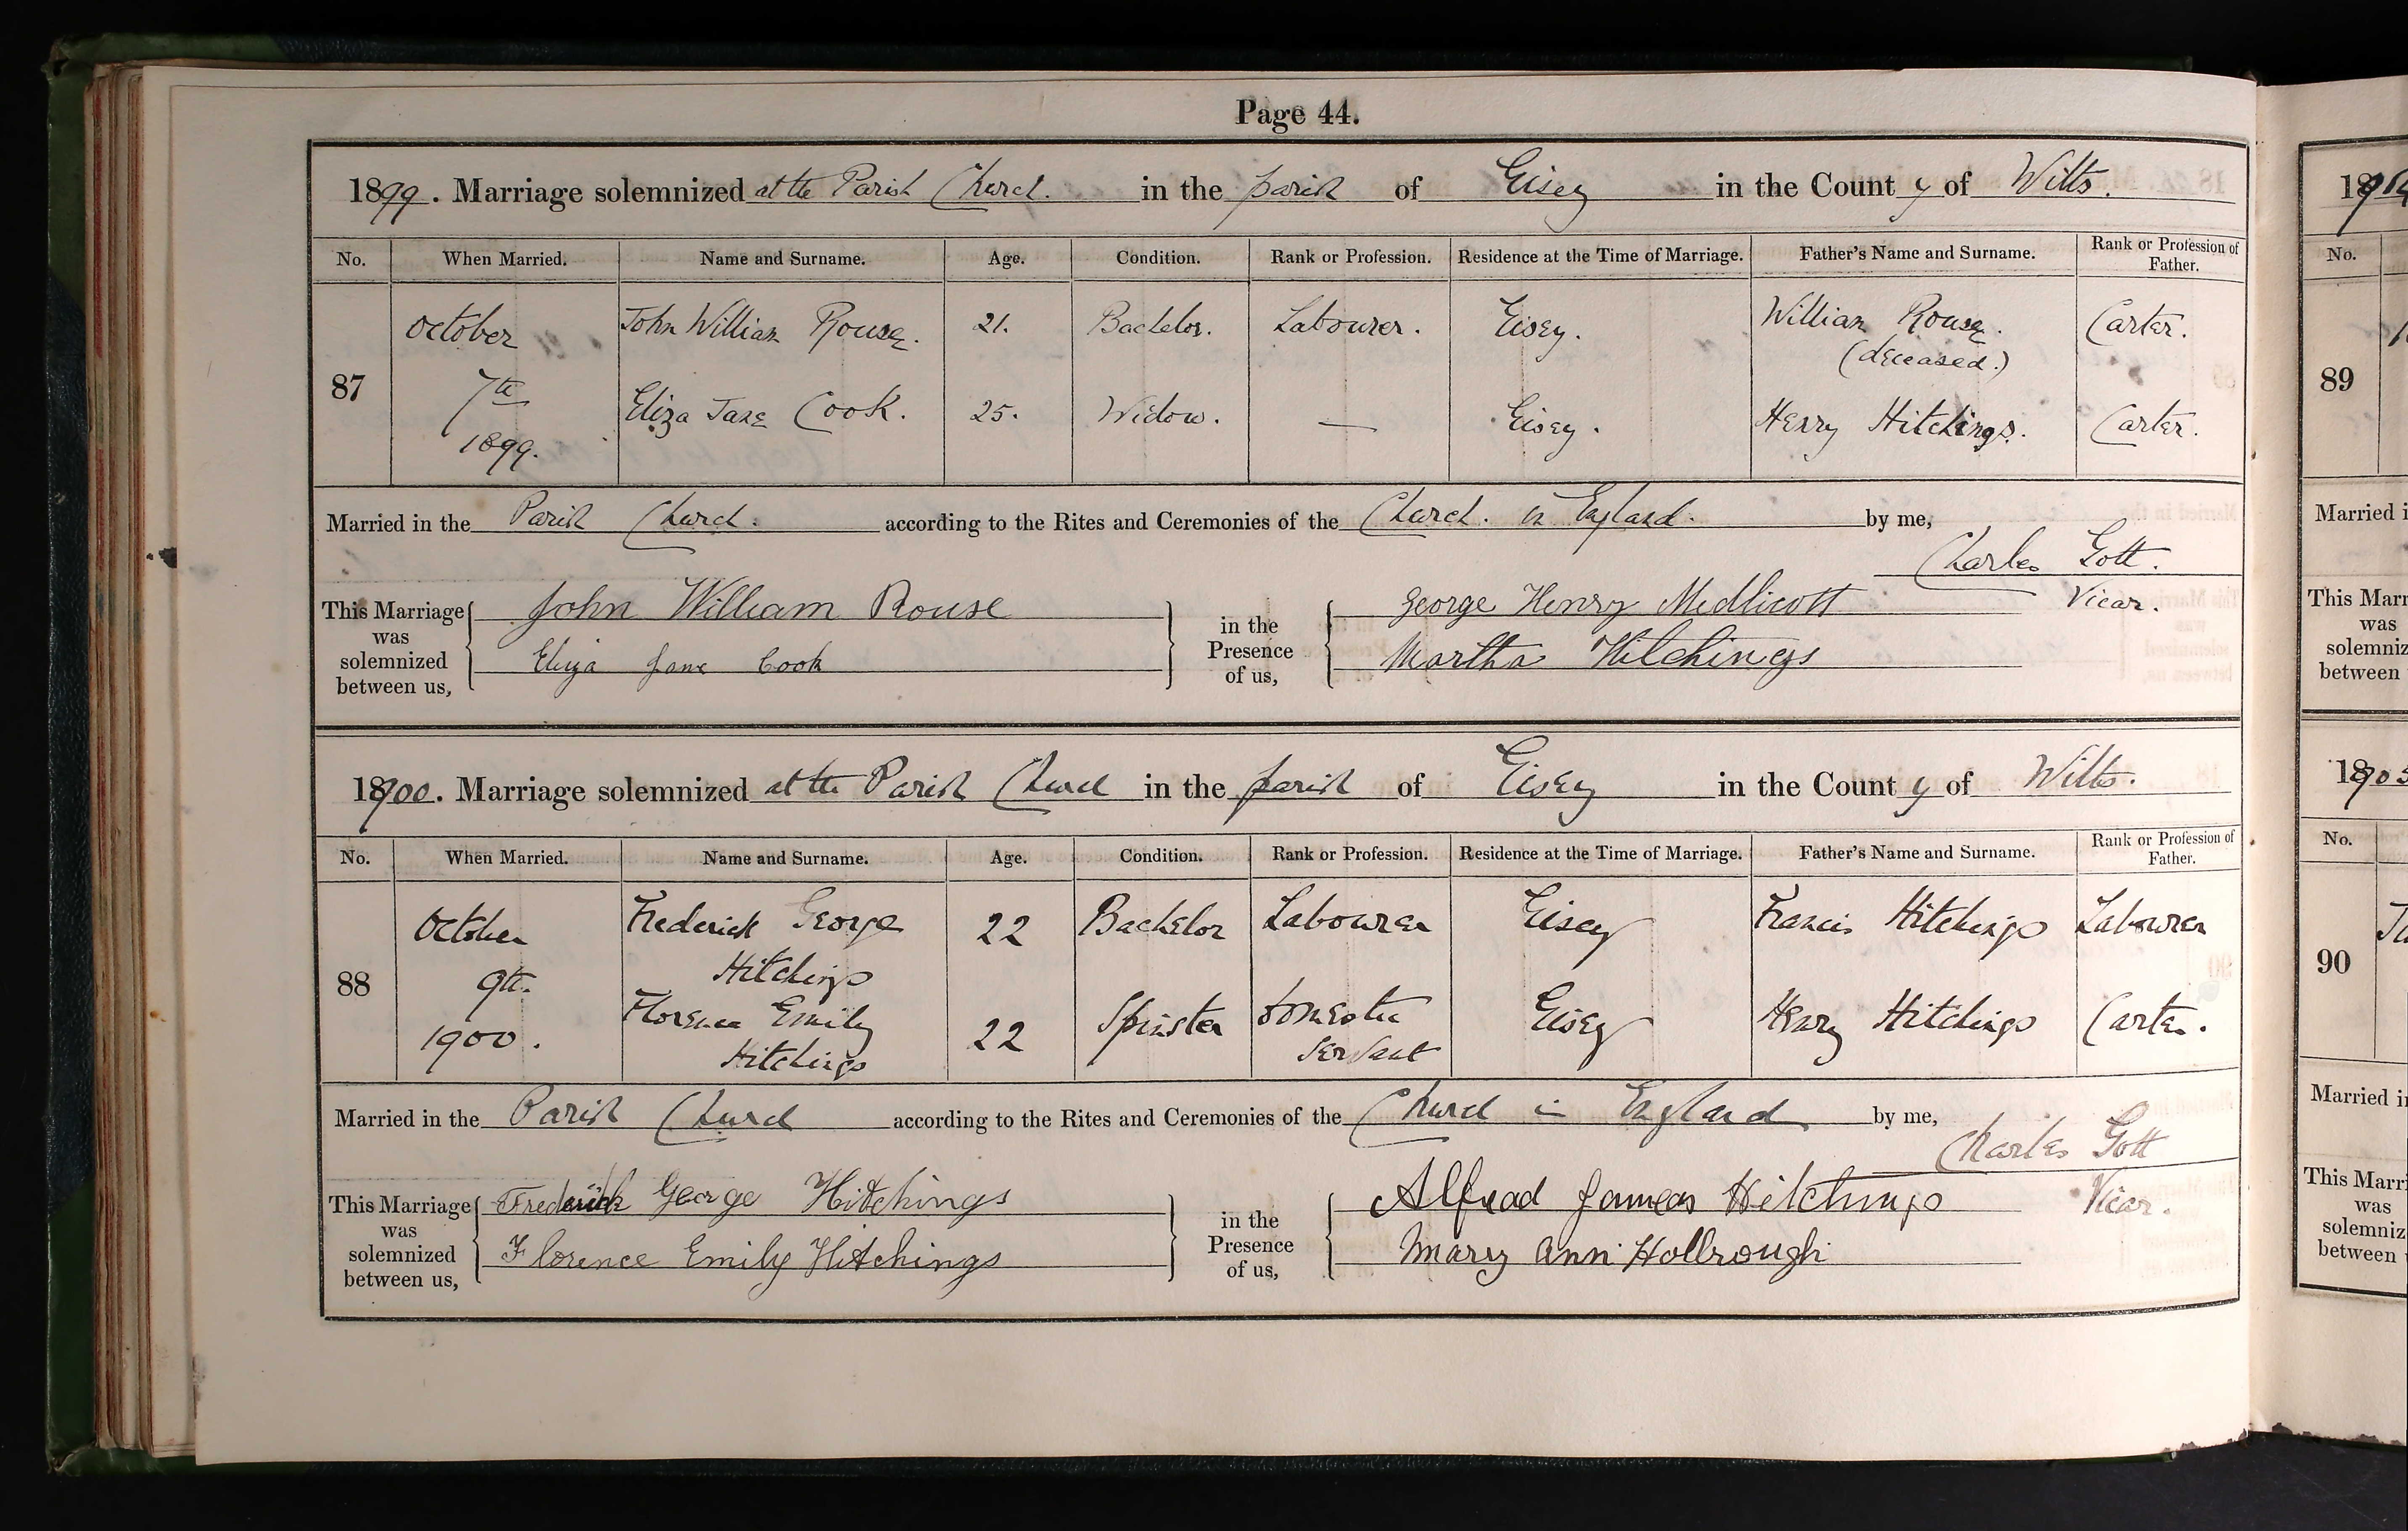 Page 44.
1899. Marriage solemnized at the Parish Church. in the parish of Eisey in the County of Wilts.
No. When Married. Name and Surname. Age. Condition. Rank or Profession. Residence at the Time of Marriage. Father's Name and Surname. Rank or Profession of Father.
87 October 7th 1899.
John William Rouse. 21. Bachelor. Labourer. Eisey. William Rouse. (deceased.) Carter.
Eliza Jane Cook. 25. Widow. — Eisey. Henry Hitchings. Carter.
Married in the Parish Church. according to the Rites and Ceremonies of the Church. in England. by me,
Charles Gott.
Vicar.
This Marriage was solemnized between us,
John William Rouse
Eliza Jane Cook
in the Presence of us,
George Henry Medlicott
Martha Hitchings
1900. Marriage solemnized at the Parish Church in the parish of Eisey in the County of Wilts.
No. When Married. Name and Surname. Age. Condition. Rank or Profession. Residence at the Time of Marriage. Father's Name and Surname. Rank or Profession of Father.
88 October 9th. 1900.
Frederick George Hitchings 22 Bachelor Labourer Eisey Francis Hitchings Labourer
Florence Emily Hitchings 22 Spinster domestic servant Eisey Henry Hitchings Carter.
Married in the Parish Church according to the Rites and Ceremonies of the Church in England by me,
Charles Gott
Vicar.
This Marriage was solemnized between us,
Frederick George Hitchings
Florence Emily Hitchings
in the Presence of us,
Alfread James Hitchings
Mary Ann Hollrough
No.
89
Married i
This Marr
was
solemniz
between
1905
No.
90
Married i
This Marri
was
solemniz
between